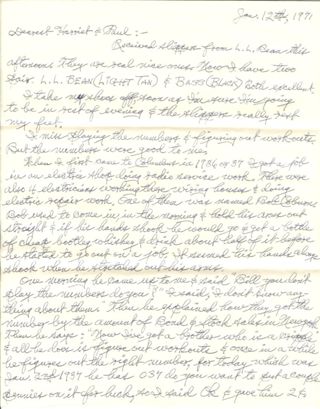 Jan. 12th, 1971
Dearest Harriet & Paul :-
Received slippers from L.L. Bean this
afternoon They are real nice ones Now I have two
pair. L.L. BEAN (LIGHT TAN) & BASS (BLACK) Both excellent
I take my shoes off soon as I'm sure I'm going
to be in rest of evening & the slippers really rest
my feet.
I miss playing the numbers & figuring out workouts.
But the numbers were good to me.
When I first came to Columbus in 1936 or 37 I got a job
in an electric shop doing radio service work. There were
also 4 electricians working there wiring houses & doing
electric repair work. One of them was named Bob
Bob used to come in in the morning & hold his arms out
straight & if his hands shook he would go & get a bottle
of cheap bootleg whiskey & drink about half of it before
he started to go out on a job. It seemed his hands always
shook when he stretched out his arms.
One morning he came up to me & said "Bill you don't
play the numbers do you?" I said, I don't know any
thing about them. Then he explained how they got the
number by the amount of Bond & stock sales in New York
Then he says: "Now I've got a brother who is a
& all he does is figure out workouts & once in a while
he figures out the right number, for today, which was
Jan. 1937 he has 037 do you want to put a couple
pennies on it for luck, so I said OK & gave him 2¢